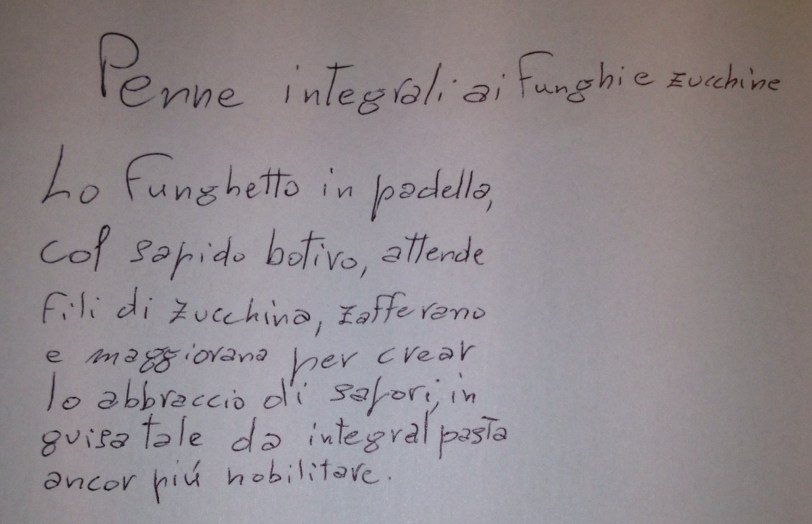 Penne integrali ai funghi e zucchine
Lo funghetto in padella,
col sapido botivo, attende
fili di zucchina, zafferano
e maggiorana per crear
lo abbraccio di sapori, in
guisa tale da integral pasta
ancor piú nobilitare.